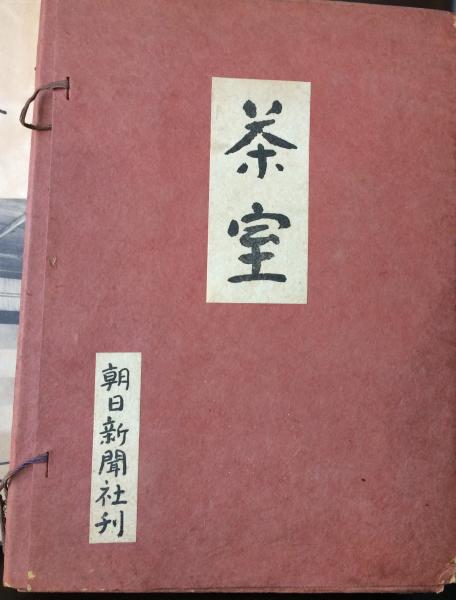 茶室
朝日新聞社刊